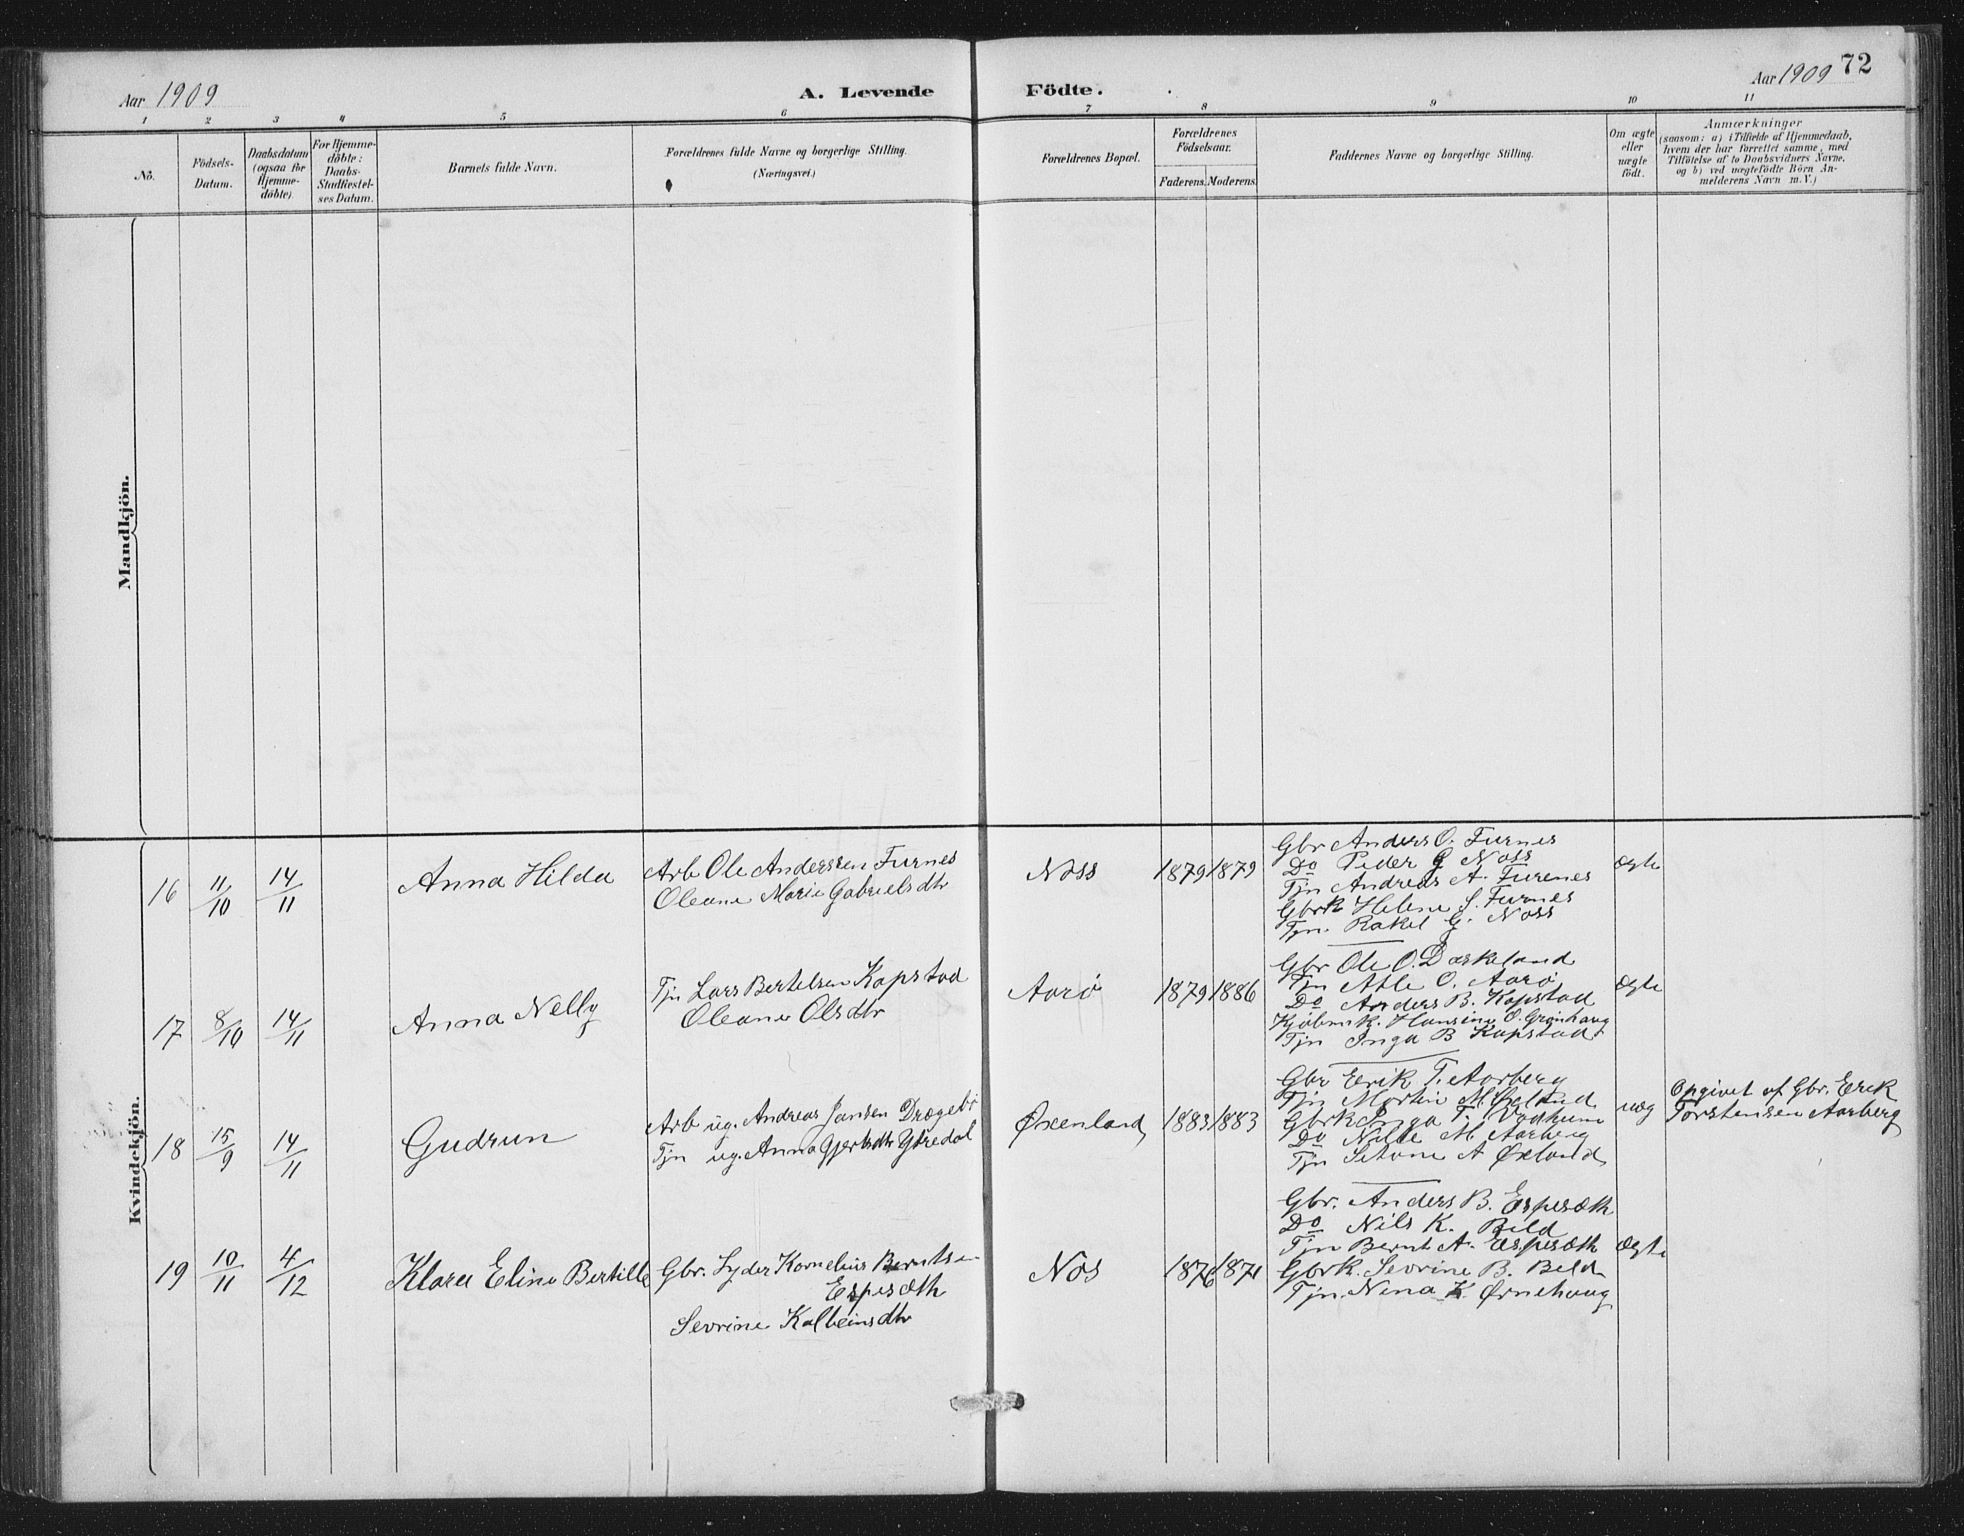 Aar 1909
A. Levende
Födte.
Aar 1909
72
1 2 3 4 5 6 7 8 9 10 11
No.
Födsels-
Datum.
Daabsdatum
(ogsaa for
Hjemme-
döbte)
For Hjemme-
döbte:
Daabs-
Stadfæstel-
ses Datum.
Barnets fulde Navn.
Forældrenes fulde Navne og borgerlige Stilling.
(Næringsvei.)
Forældrenes Bopæl.
Forældrenes
Födselsaar.
Faderens. Moderens.
Faddernes Navne og borgerlige Stilling.
Om ægte
eller
uægte
födt.
Anmærkninger
(saasom: a) i Tilfælde af Hjemmedaab,
hvem der har forrettet samme, med
Tilföielse af to Daabsvidners Navne,
og b) ved uægtefödte Börn An-
melderens Navn m.V.)
Mandkjön.
Kvindekjön.
16
11/10
14/11
Anna Hilda
Arb Ole Anderssen Furnes
Oleane Marie Gabrielsdtr
Noss
1879 1879
Gbr Anders O. Furnes
Do Peder G Noss
Tjn Andreas A. Furenes
Gbrk Helene S. Furnes
Tjn. Rakel G. Noss
ægte
17
8/10
14/11
Anna Nelly
Tjn Lars Bertelsen Kapstad
Oleane Olsdtr
Aarø
1879 1886
Gbr Ole O. Daskeland
Tjn Atle O. Aarø
Do Anders B. Kapstad
Kjøbmk. Hansine O. Grønhaug
Tjn Inga B Kapstad
ægte
18
15/9
14/11
Gudrun
Arb ug. Andreas Jansen Drægebø
Tjn ug. Anna Gjertsdtr Ytredal
Øxenland
1883 1883
Gbr Eerik T. Aarberg
Tjn Martin M.
Gbrk Inga T. Vadheim
Do Nille M Aarberg
Tjn A Øxland
uæg
Opgivet af Gbr. Erik
Torstensen Aarberg
19
10/11
4/12
Klara Eline Bertille
Gbr. Lyder Kornelius Berntsen
Espesæth
Sevrine Kolbeinsdtr
Nos
1876 1871
Gbr. Anders B. Espesæth
Do Nils K. Beld
Tjn Bernt A. Espesæth
Gbrk. Sevrine B. Beld
Tjn. Nena K. Ørnehaug
ægte